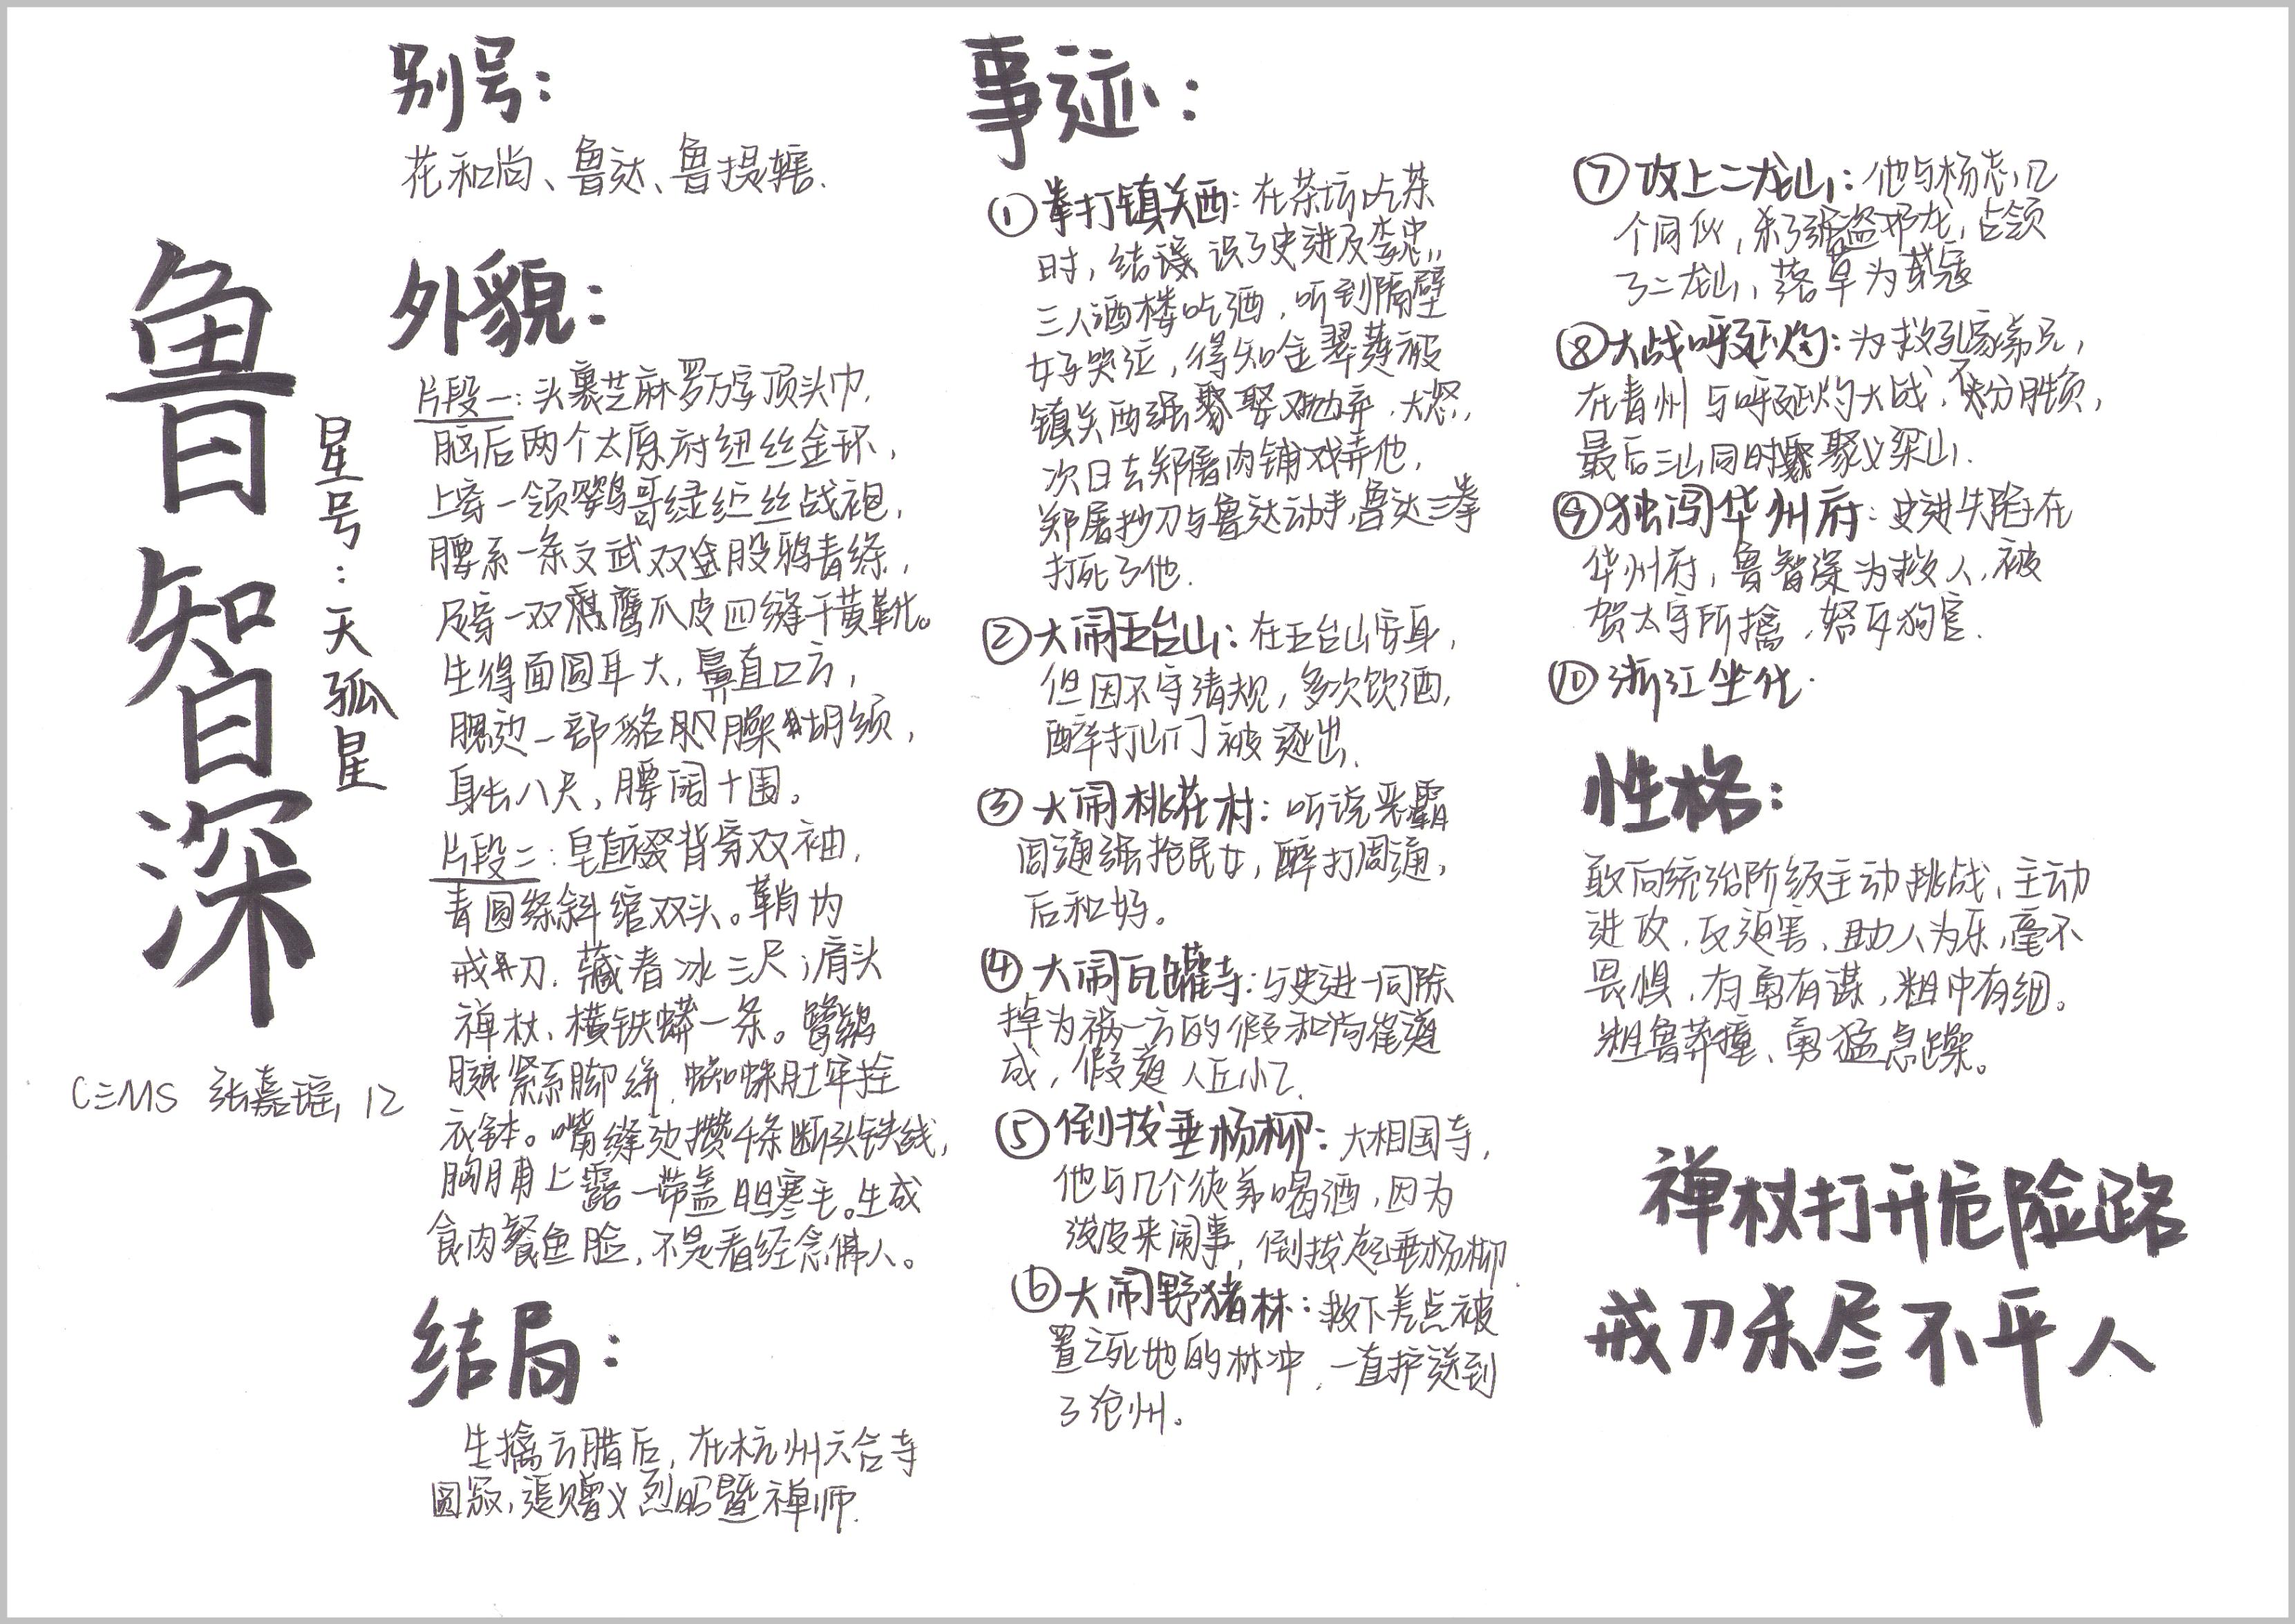 鲁智深
星号：天孤星
C≡MS 张嘉瑶，12
别号：
花和尚、鲁达、鲁提辖.
外貌：
片段一：头裹芝麻罗万字顶头巾，
脑后两个太原府纽丝金环，
上穿一领鹦哥绿纻丝战袍，
腰系一条文武双股鸦青绦，
足穿一双鹰爪皮四缝干黄靴。
生得面圆耳大，鼻直口方，
腮边一部貉臊胡须，
身长八尺，腰阔十围。
片段二：皂直裰背穿双袖，
青圆绦斜绾双头。鞘内
戒刀，藏春冰三尺；肩头
禅杖，横铁蟒一条。鹭鹚
腿紧系脚絣，蜘蛛肚牢拴
衣钵。嘴缝边攒千条断头铁线，
胸脯上露一带盖胆寒毛。生成
食肉餐鱼脸，不是看经念佛人。
结局：
生擒方腊后，在杭州六合寺
圆寂，追赠义烈昭暨禅师.
事迹：
①拳打镇关西：在茶坊吃茶
时，结识了史进及李忠，
三人酒楼吃酒，听到隔壁
女子哭泣，得知金翠莲被
镇关西强娶又抛弃，大怒，
次日去郑屠肉铺戏弄他，
郑屠抄刀与鲁达动手，鲁达三拳
打死了他.
②大闹五台山：在五台山安身，
但因不守清规，多次饮酒，
醉打山门被逐出.
③大闹桃花村：听说恶霸
周通强抢民女，醉打周通，
后和好。
④大闹瓦罐寺：与史进一同除
掉为祸一方的假和尚崔道
成，假道人丘小乙.
⑤倒拔垂杨柳：大相国寺，
他与几个徒弟喝酒，因为
泼皮来闹事，倒拔起垂杨柳.
⑥大闹野猪林：救下差点被
置之死地的林冲，一直护送到
了沧州。
⑦攻上二龙山：他与杨志几
个同伙，杀了强盗邓龙，占领
了二龙山，落草为寇
⑧大战呼延灼：为救孔家弟兄，
在青州与呼延灼大战，不分胜负，
最后三山同时聚义梁山.
⑨独闯华州府：史进失陷在
华州府，鲁智深为救人，被
贺太守所擒，怒斥狗官.
⑩浙江坐化.
性格：
敢向统治阶级主动挑战、主动
进攻，反迫害，助人为乐，毫不
畏惧，有勇有谋，粗中有细。
粗鲁莽撞、勇猛急躁。
禅杖打开危险路
戒刀杀尽不平人